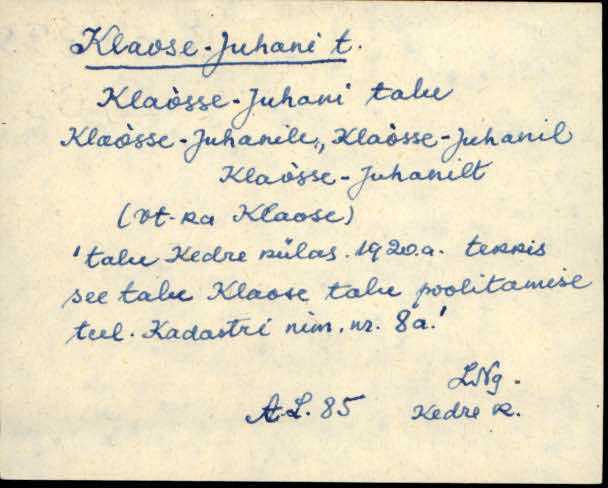 Klaose-Juhani t.
Klaòsse-Juhani talu
Klaòsse-Juhanile, Klaòsse-Juhanil
Klaòsse-Juhanilt
(vt. ka Klaose)
'talu Kedre külas. 1920.a. tekkis
see talu Klaose talu poolitamise
teel. Kadastri nim. nr. 8a.'
LNg.
A.L. 85 Kedre k.